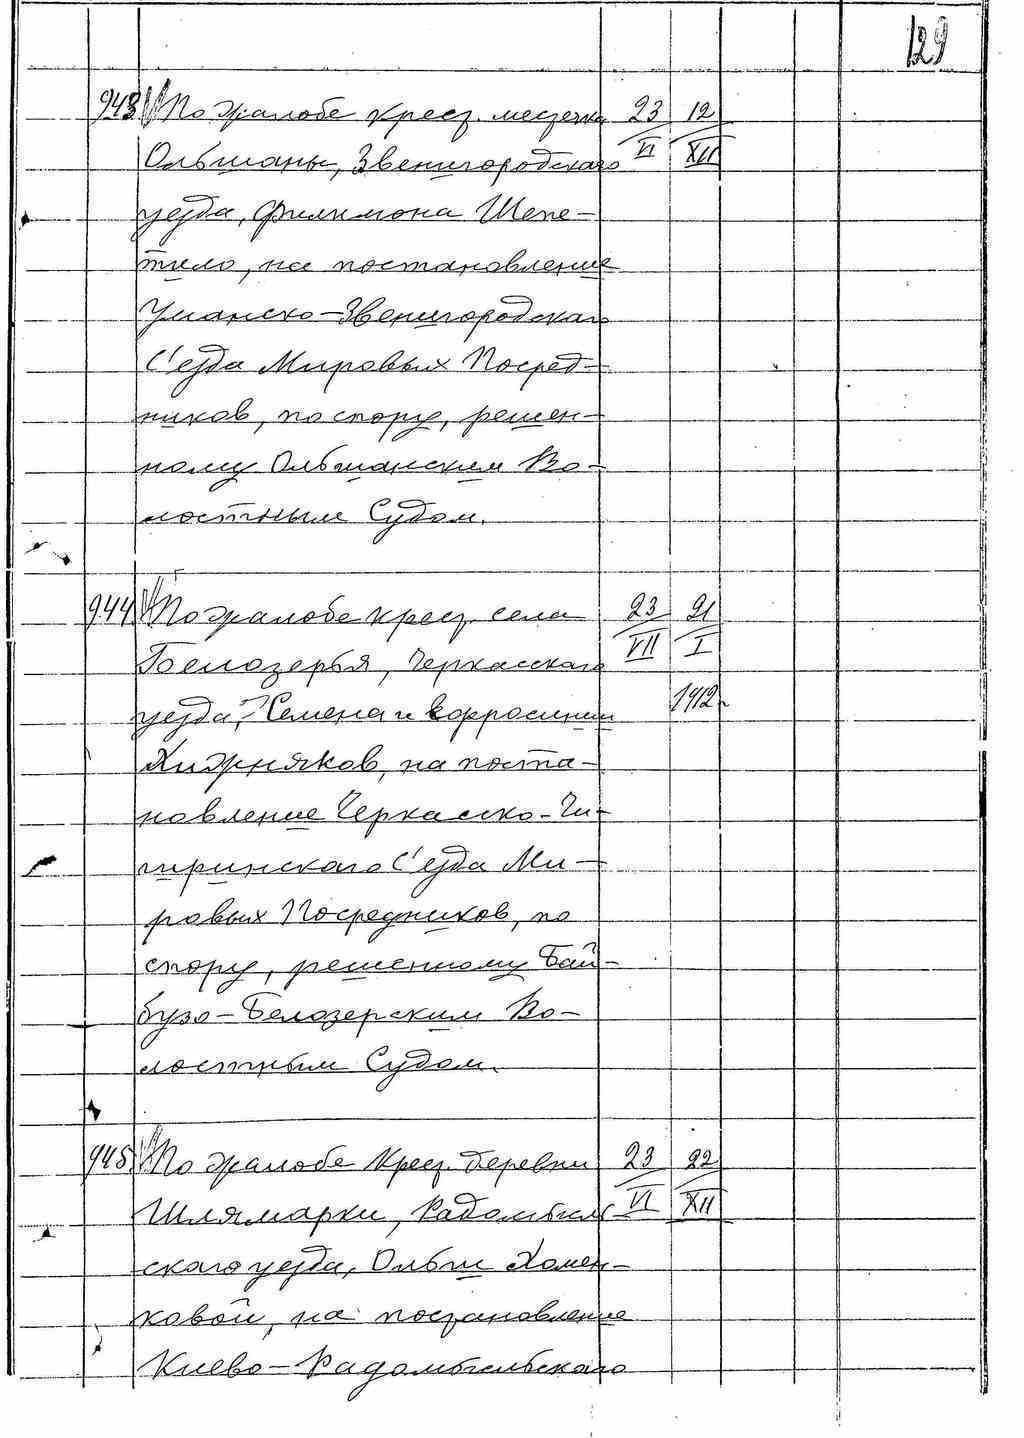 129
943 По жалобе крест. местечка 23/VI 12/XII
Ольшаны, Звенигородскаго
уезда, Филимона Шепе-
тило, на постановление
Уманско-Звенигородскаго
С'езда Мировых Посред-
ников, по спору, решен-
ному Ольшанским Во-
лостным Судом.
944 По жалобе крест. села 23/VII 21/I
Белозерья, Черкасскаго
уезда, Семена и 1912 г
Хижняков, на поста-
новление Черкасско-Чи-
гиринскаго С'езда Ми-
ровых Посредников, по
спору, решенному Бай-
бузо-Белозерским Во-
лостным Судом.
945 По жалобе крест. деревни 23/VI 22/XII
Шлямарки,
скаго уезда, Ольги Хомен-
ковой, на постановление
Киево-Радомысльскаго